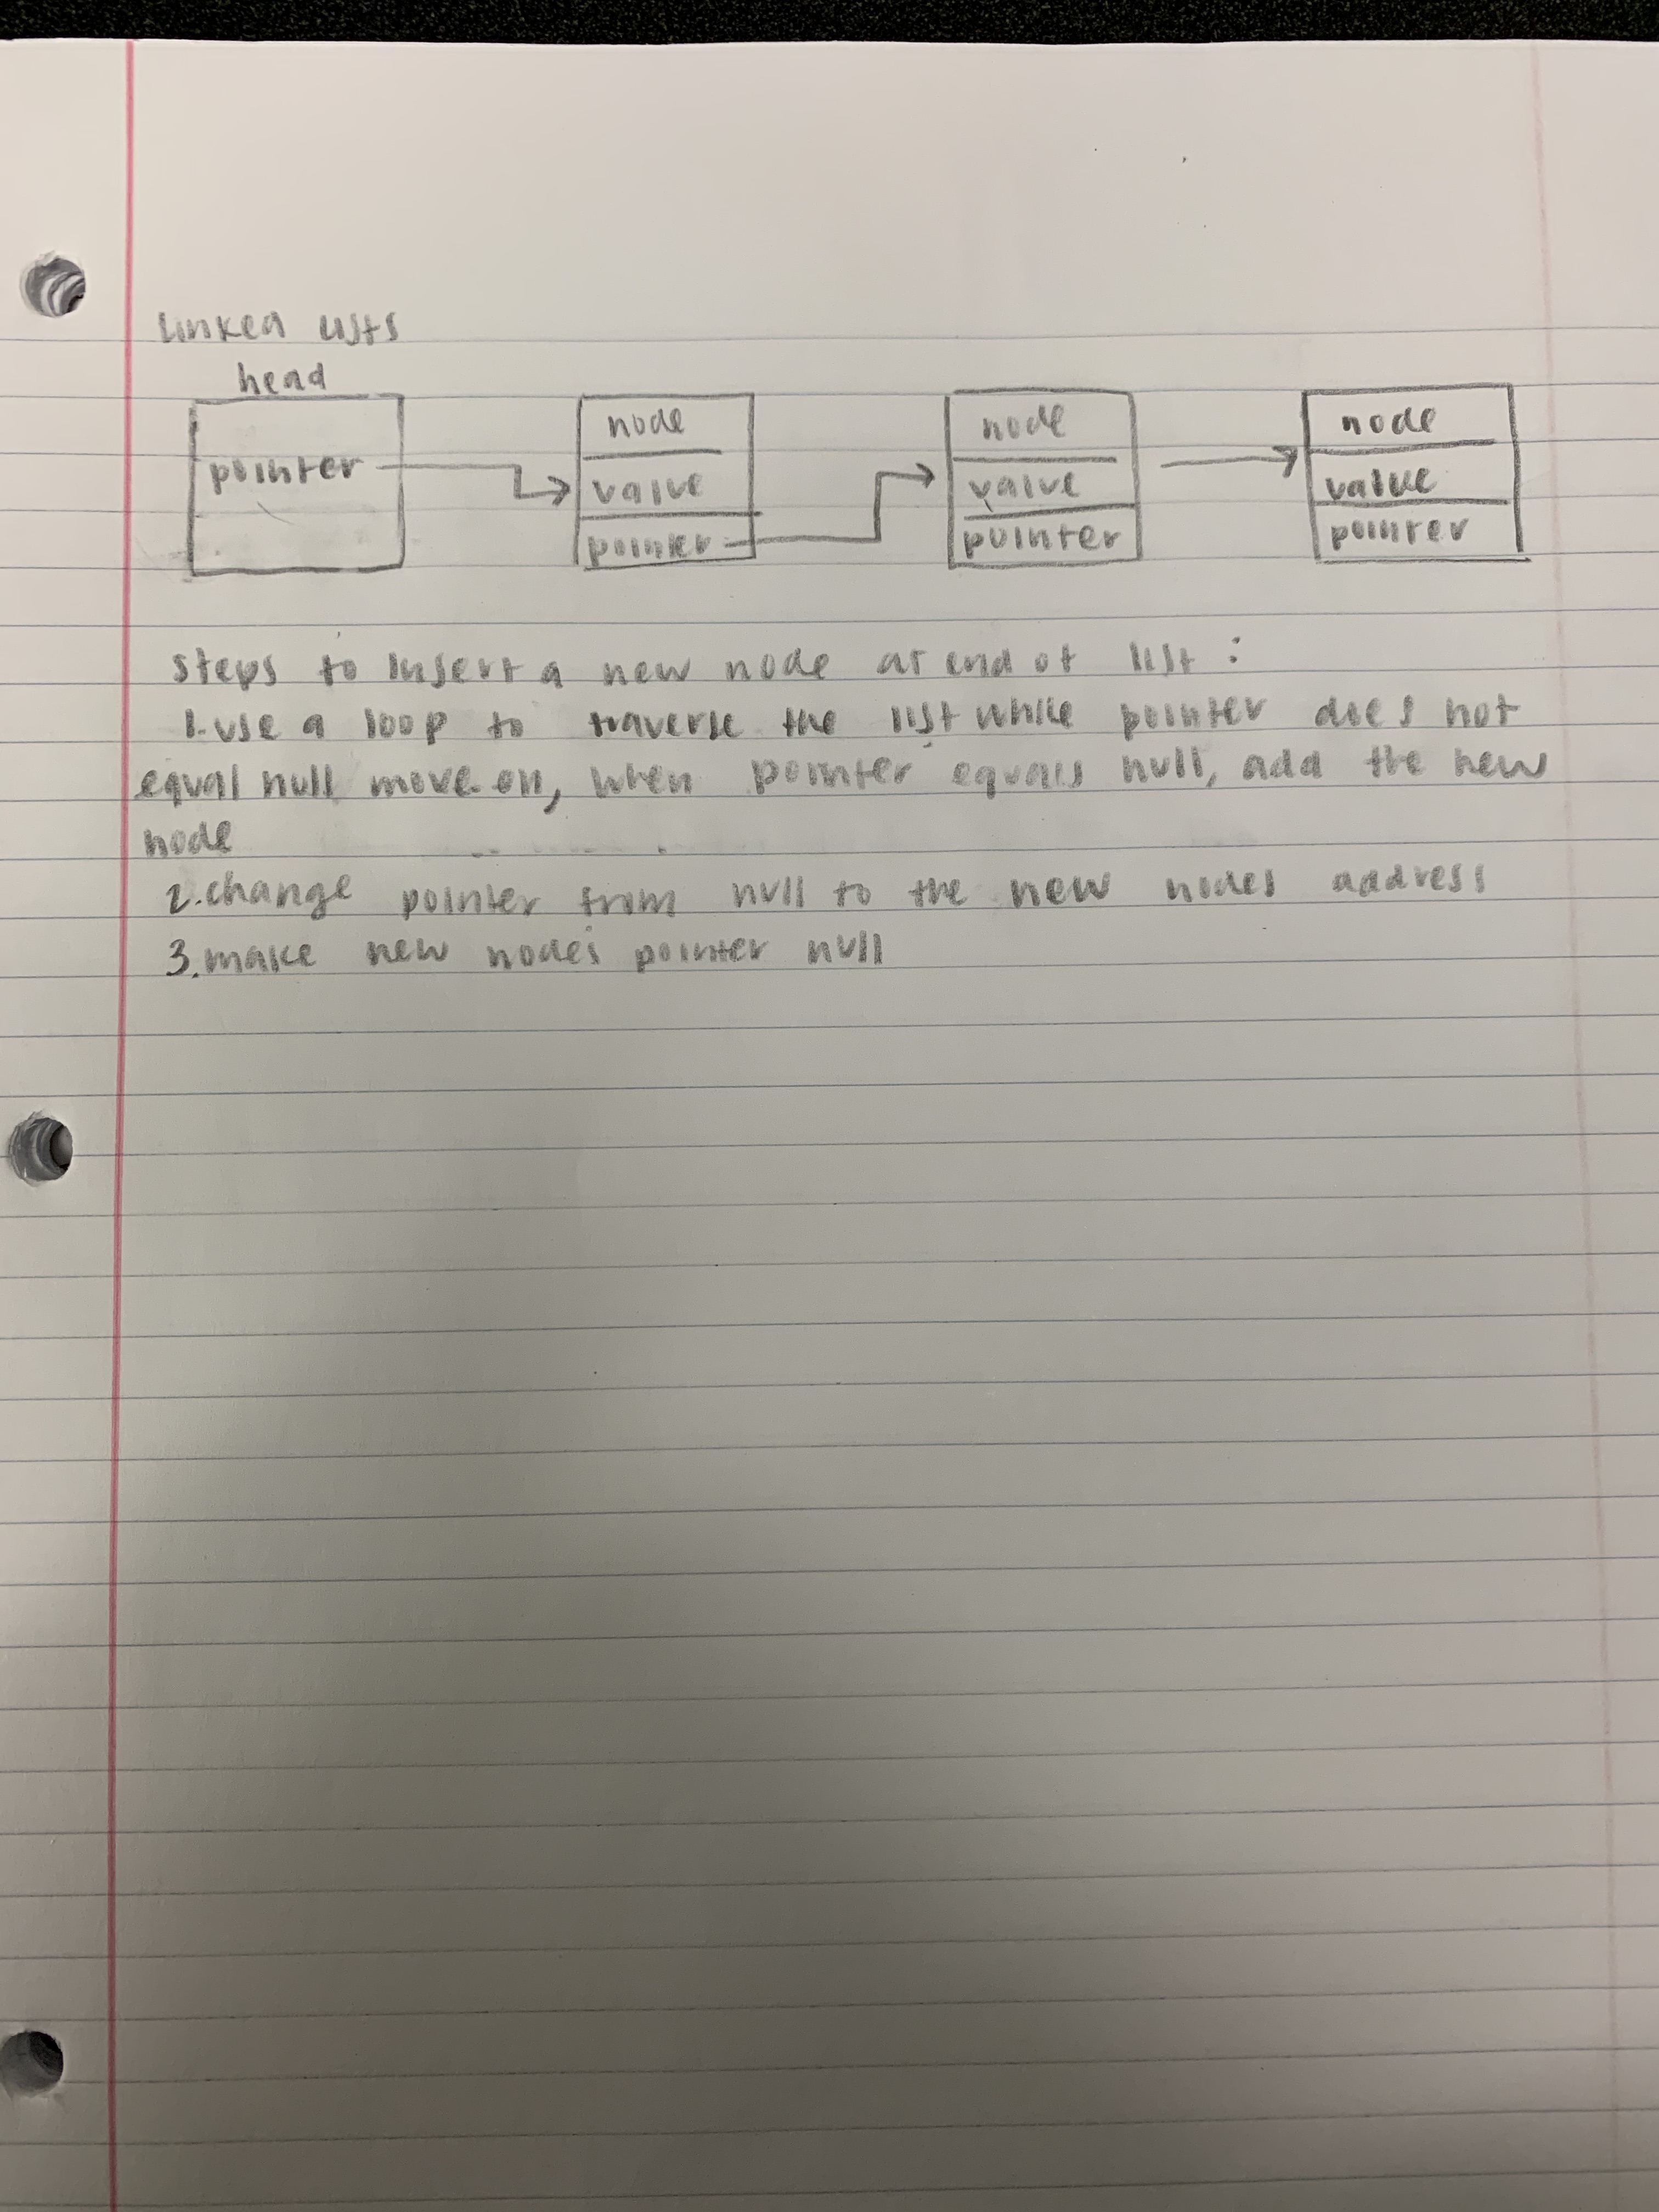 linked lists
head
pointer
node
value
pointer
node
value
pointer
node
value
pointer
steps to insert a new node at end of list :
1. use a loop to traverse the list while pointer does not
equal null move on, when pointer equals null, add the new
node
2. change pointer from null to the new nodes address
3. make new nodes pointer null